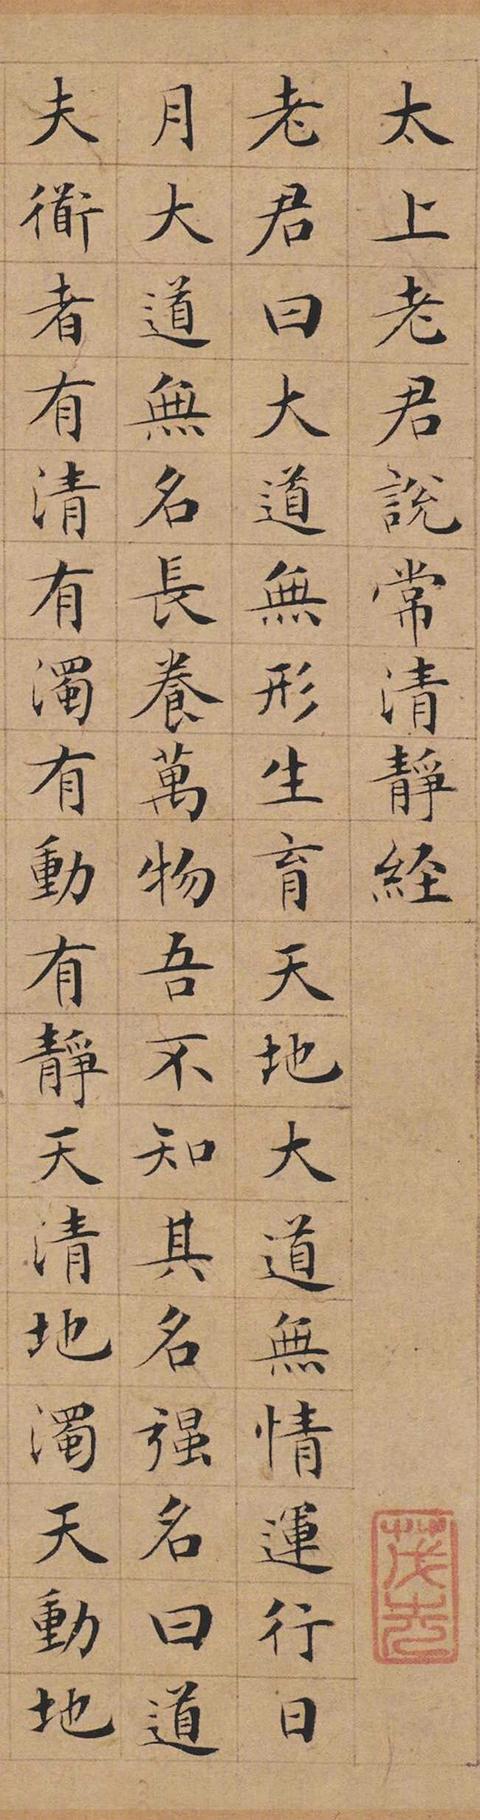 太上老君說常清靜経
老君曰大道無形生育天地大道無情運行日
月大道無名長養萬物吾不知其名强名曰道
夫衜者有清有濁有動有靜天清地濁天動地